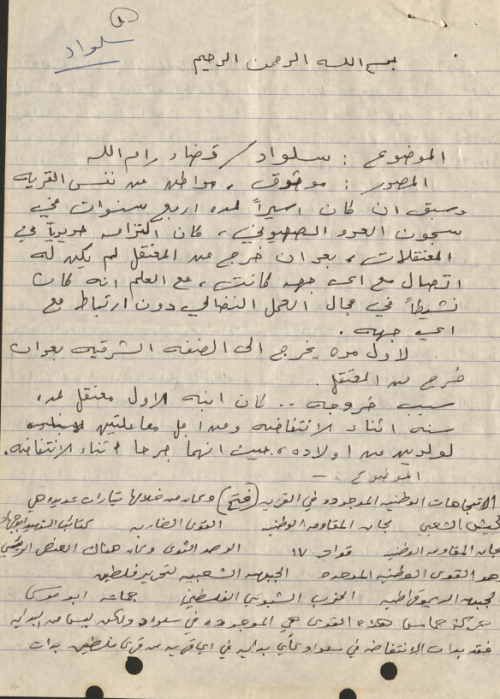 سلواد
بسم الله الرحمن الرحيم
الموضوع : سلواد / قضاء رام الله
المصدر : موثوق ، مواطن من نفس القريه
وسبق ان كان اسيراً لمده اربع سنوات في
سجون العدو الصهيوني ، كان التزامه حديدياً في
المعتقلات ، بعد ان خرج من المعتقل لم يكن له
اتصال مع اي جهه كانت ، مع العلم انه كان
نشيطاً في مجال العمل النضالي دون ارتباط مع
اي جهه .
لاول مره يخرج الى الضفه الشرقيه بعد ان
خرج من المعتقل .
سبب خروجه .. كان ابنه الاول معتقل لمده
سنه اثناء الانتفاضه ومن اجل معاملتين
لولدين من اولاده ، حيث انهما جرحا اثناء الانتفاضه .
الموضوع :-
الاتجاهات الوطنيه الموجوده في القريه (فتح) وكان من خلالها تيارات عديده هي
الجيش الشعبي لجان المقاومه الوطنية القوى الضاربه كتائب الشهيد ابو جهاد
لجان المقاومه الوطنيه قوات ١٧ الرصد الثوري وكان هناك العنصر الرئيسي
هو القوى الوطنيه الموحده الجبهه الشعبيه لتحرير فلسطين
الجبهه الديموقراطيه الحزب الشيوعي الفلسطيني جماعه ابو موسى
حركة حماس هذه القوى هي الموجوده في سلواد ولكن ليس من البدايه
فقد بدات الانتفاضه في سلواد وكأي بدايه في اي قريه من قرى فلسطين بدات